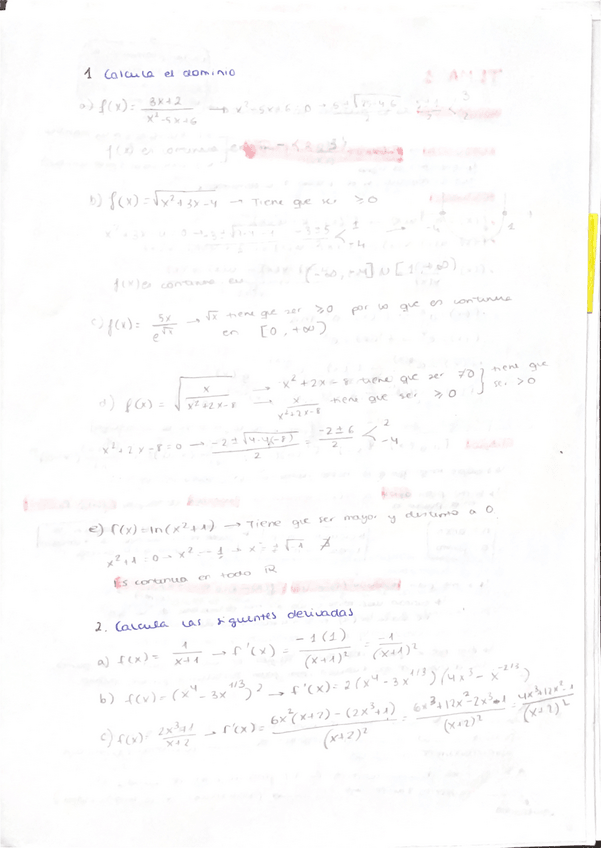 1 Calcula el dominio
a) f(x) = 3x+2 / x²-5x+6 → x²-5x+6=0
f(x) es continua en
b) f(x) = √x²+3x-4 → Tiene que ser ≥0
-3±5 / 2 < 1 -4
f(x) es continua en (-∞, -4] U [1, +∞)
c) f(x) = 5x / e^√x → √x tiene que ser ≥0 por lo que es continua
en [0, +∞)
d) f(x) = √ x / x²+2x-8 → x²+2x-8 tiene que ser ≠0 } tiene que
→ x / x²+2x-8 tiene que ser ≥0 } ser >0
x²+2x-8=0 → -2±√4-4(-8) / 2 = -2±6 / 2 < 2 -4
e) f(x) = ln(x²+1) → Tiene que ser mayor y distinto a 0
x²+1=0 → x²=-1 → x=±√-1 ∄
Es continua en todo ℝ
2. Calcula las siguientes derivadas
a) f(x) = 1 / x+1 → f'(x) = -1(1) / (x+1)² = -1 / (x+1)²
b) f(x) = (x⁴-3x^1/3)² → f'(x) = 2(x⁴-3x^1/3)(4x³-x^-2/3)
c) f(x) = 2x³+1 / x+2 → f'(x) = 6x²(x+2)-(2x³+1) / (x+2)² = 6x³+12x²-2x³-1 / (x+2)² = 4x³+12x²-1 / (x+2)²